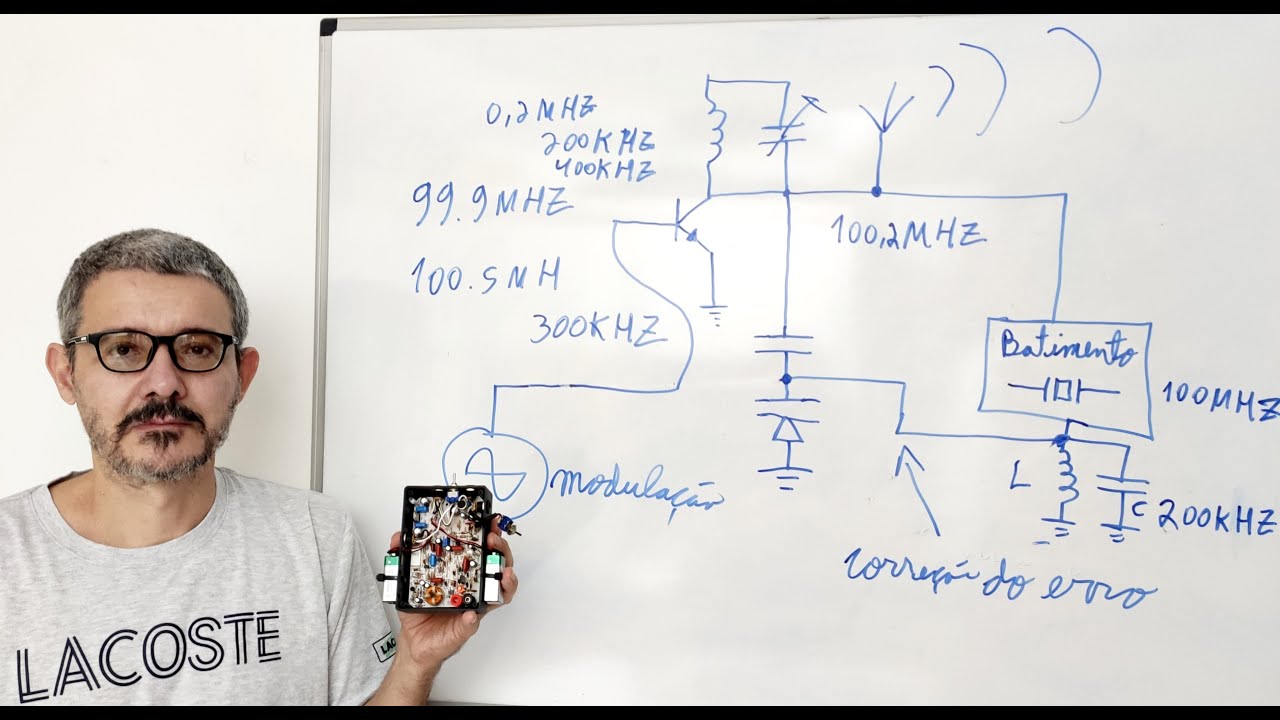 0,2MHZ
200KHZ
400KHZ
99.9MHZ
100,2MHZ
100.5MH
300KHZ
Batimento
100MHZ
modulação
L
C
200KHZ
correção do erro
LACOSTE